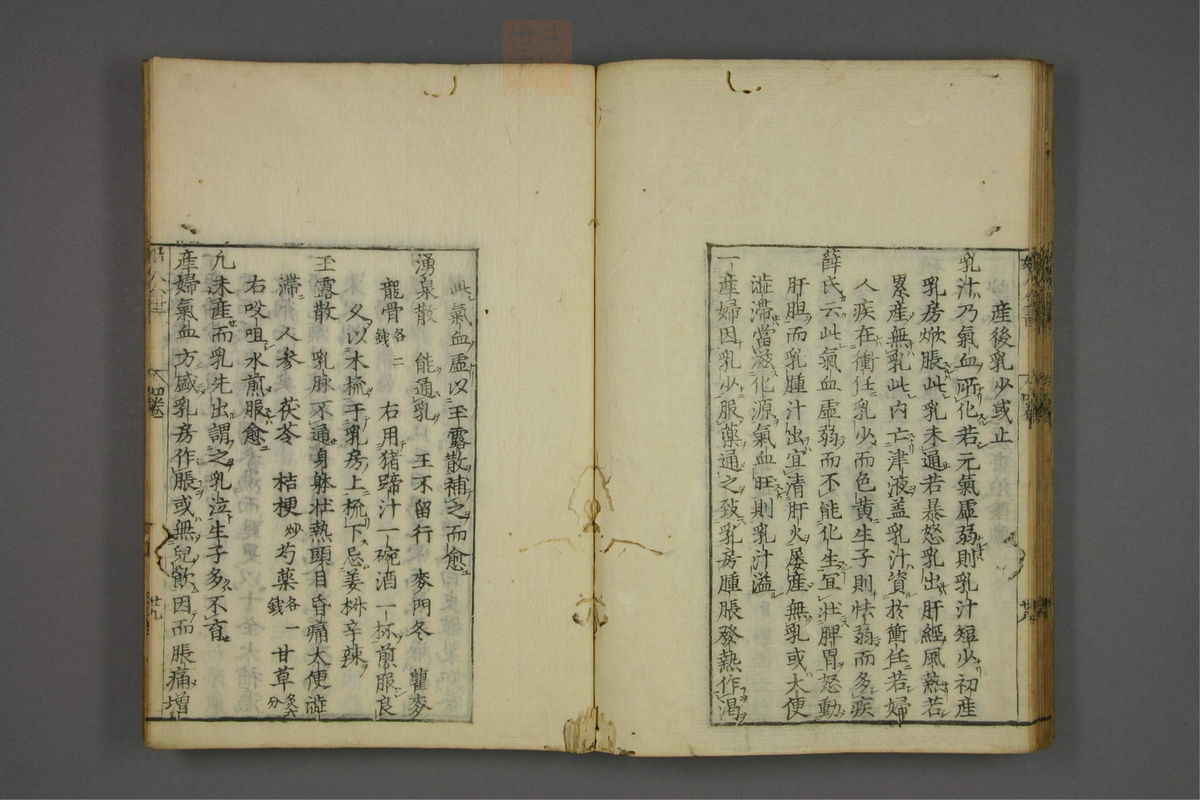 産後乳少或止
乳汁乃氣血所化若元氣虚弱則乳汁短少初産
乳房焮脹此乳未通若暴怒乳出肝經風熱若
累産無乳此内亡津液盖乳汁資於衝任若婦
人疾在衝任乳少而色黄生子則怯弱而多疾
薛氏云此氣血虚弱而不能化生宜壮脾胃怒動
肝胆而乳腫汁出宜清肝火屡産無乳或大便
澁滞當滋化源氣血旺則乳汁溢
一産婦因乳少服藥通之致乳房腫脹發熱作渇
此氣血虚以玉露散補之而愈
湧泉散 能通乳 王不留行 麥門冬 瞿麥
龍骨各二錢 右用猪蹄汁一碗酒一杯煎服良
久以木梳于乳房上梳下忌姜椒辛辣
玉露散 乳脉不通身躰壮熱頭目昏痛大便澁
滞 人参 茯苓 桔梗炒 芍藥各一錢 甘草炙六分
右㕮咀水煎服愈
凢未産而乳先出謂之乳泣生子多不育
産婦氣血方盛乳房作脹或無兒飲因而脹痛増
四卷
廿九